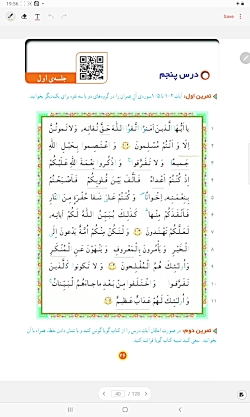 19:36
درس پنجم
جلسه‌ی اول
تمرین اول: آیات ۱۰۲ تا ۱۰۵ سوره‌ی آل عمران را در گروه‌های دو یا سه نفره برای یکدیگر بخوانید.
یا اَیُّهَا الَّذینَ آمَنُوا اتَّقُوا اللّٰهَ حَقَّ تُقاتِهِ وَ لا تَموتُنَّ
اِلّا وَ اَنتُم مُسلِمونَ وَ اعتَصِموا بِحَبلِ اللّٰهِ
جَمیعًا وَ لا تَفَرَّقوا وَ اذکُروا نِعمَةَ اللّٰهِ عَلَیکُم
اِذ کُنتُم اَعداءً فَاَلَّفَ بَینَ قُلوبِکُم فَاَصبَحتُم
بِنِعمَتِهِ اِخوانًا وَ کُنتُم عَلیٰ شَفا حُفرَةٍ مِنَ النّارِ
فَاَنقَذَکُم مِنها کَذٰلِكَ یُبَیِّنُ اللّٰهُ لَکُم آیاتِهِ
لَعَلَّکُم تَهتَدونَ وَ لتَکُن مِنکُم اُمَّةٌ یَدعونَ اِلَی
الخَیرِ وَ یَأمُرونَ بِالمَعروفِ وَ یَنهَونَ عَنِ المُنکَرِ
وَ اُولٰئِكَ هُمُ المُفلِحونَ وَ لا تَکونوا کَالَّذینَ
تَفَرَّقوا وَ اختَلَفوا مِن بَعدِ ما جاءَهُمُ البَیِّناتُ
وَ اُولٰئِكَ لَهُم عَذابٌ عَظیمٌ
تمرین دوم: در صورت امکان آیات درس را از کتاب گویا گوش کنید و با نشان دادن خط، همراه با آن
بخوانید. سعی کنید شبیه کتاب گویا قرائت کنید.
40